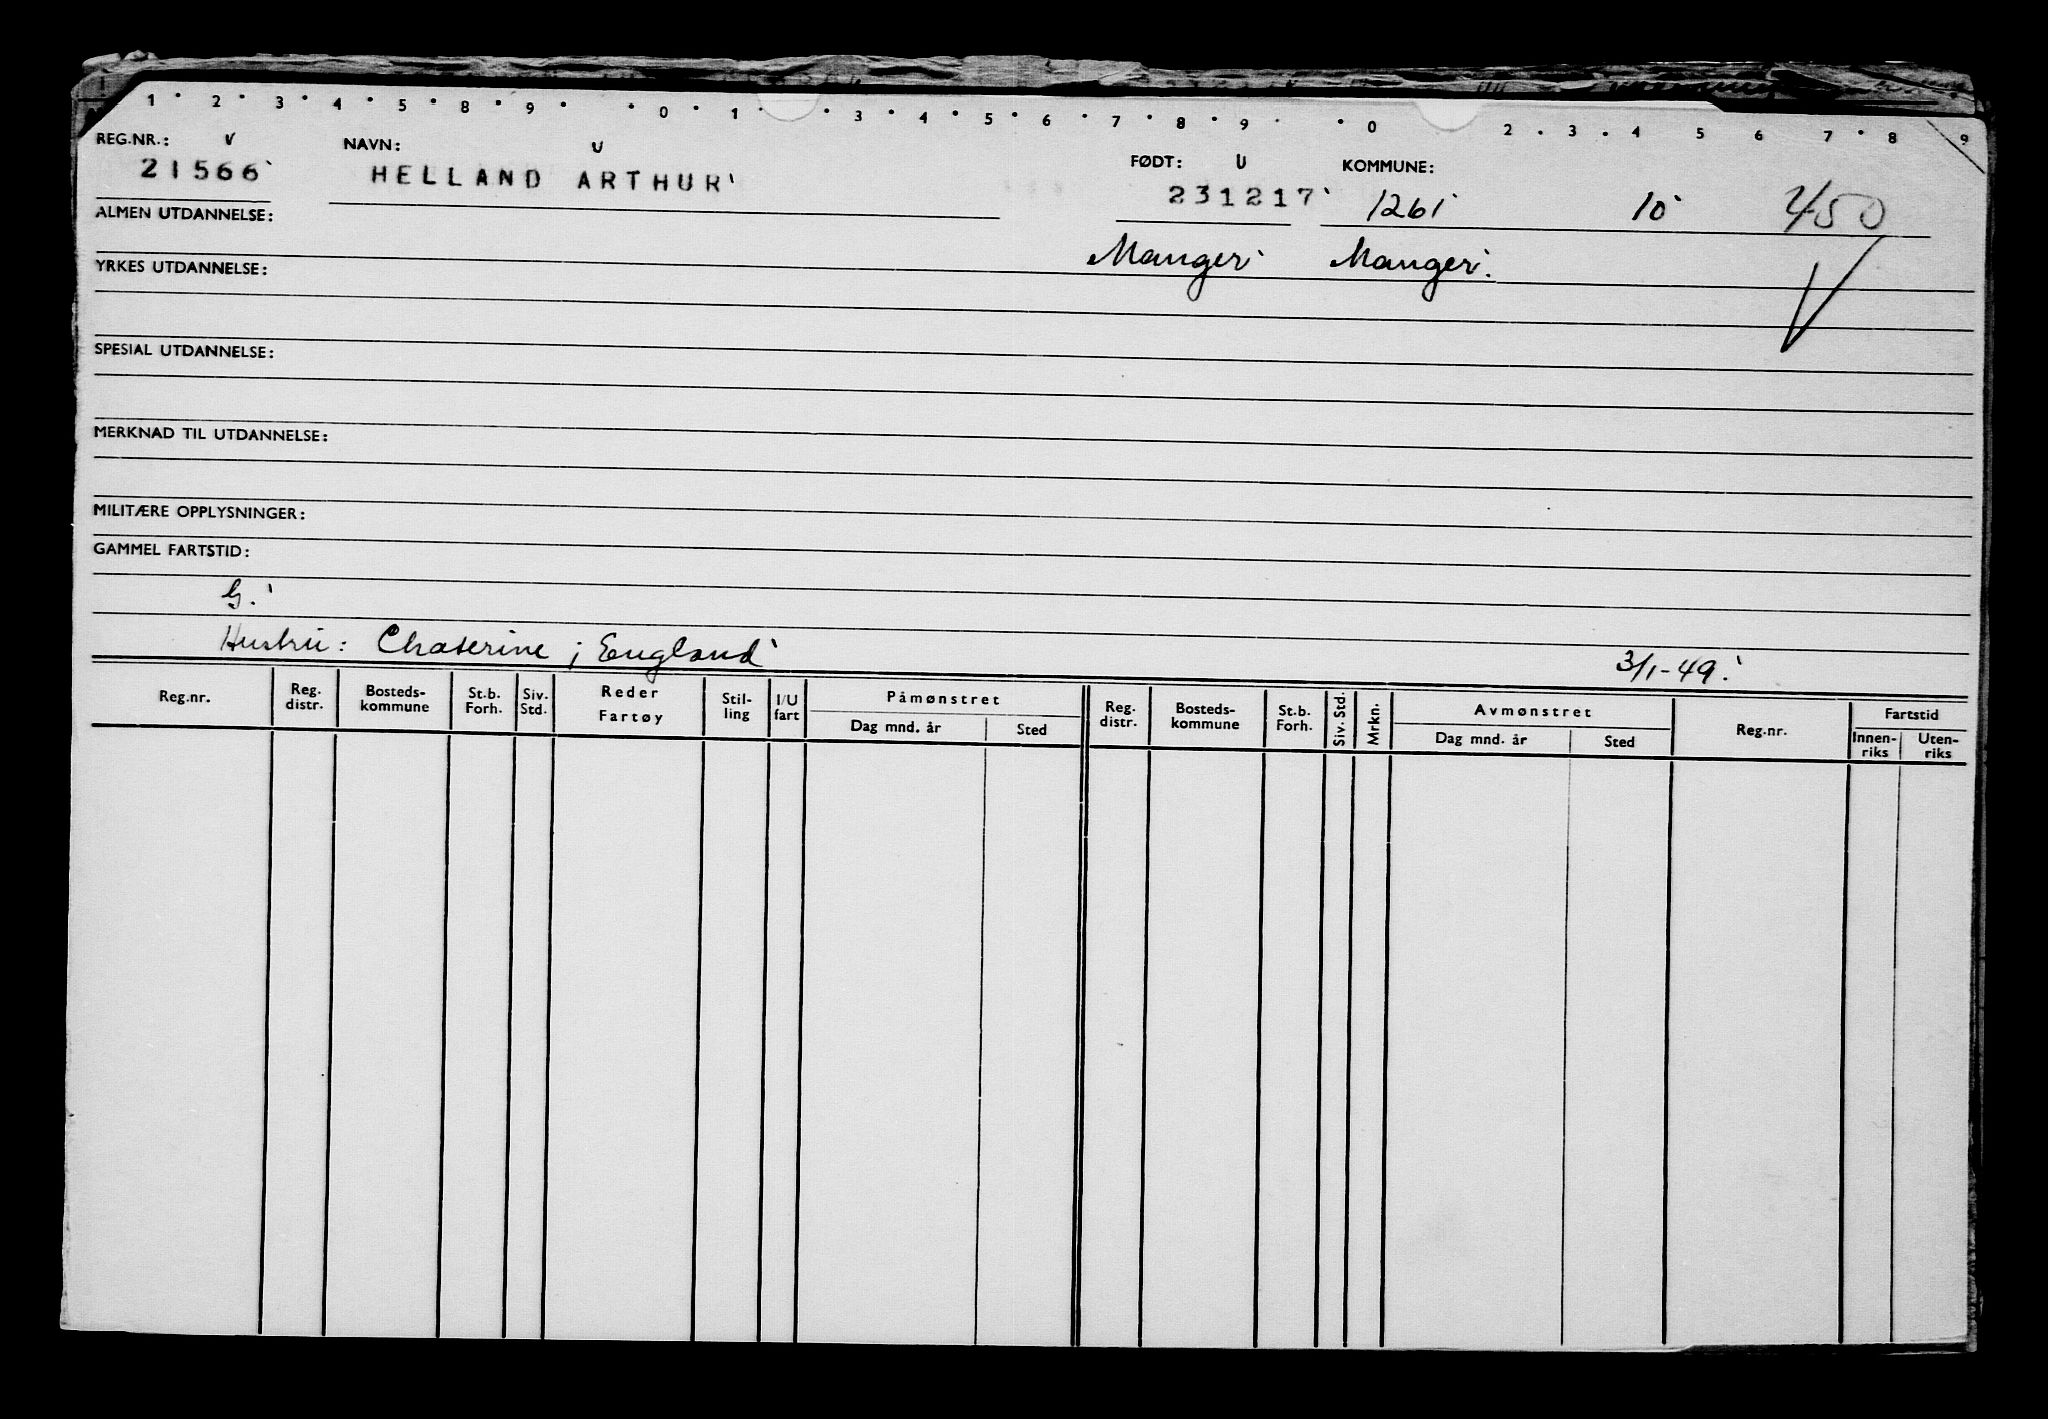 1 · 2 · 3 · 4 · 5 · 8 · 9 · · 0 · 1 · · 3 · 4 · 5 · 6 · 7 · 8 · 9 · · 0 2 · 3 · 4 5 6 7 · 8 9
REG.NR.: V NAVN: U FØDT: U KOMMUNE:
21566 HELLAND ARTHUR 231217 1261 10 450
ALMEN UTDANNELSE:
Manger Manger.
YRKES UTDANNELSE:
SPESIAL UTDANNELSE:
MERKNAD TIL UTDANNELSE:
MILITÆRE OPPLYSNINGER:
GAMMEL FARTSTID:
G.
Hustru: Chaterine ; England 3/1-49.
Reg.nr. Reg. distr. Bosteds-kommune St.b. Forh. Siv. Std. Reder Fartøy Stil-ling I/U fart Påmønstret Reg. distr. Bosteds-kommune St.b. Forh. Siv. Std. Mrkn. Avmønstret Reg.nr. Fartstid
Dag mnd. år Sted Dag mnd. år Sted Innen-riks Uten-riks